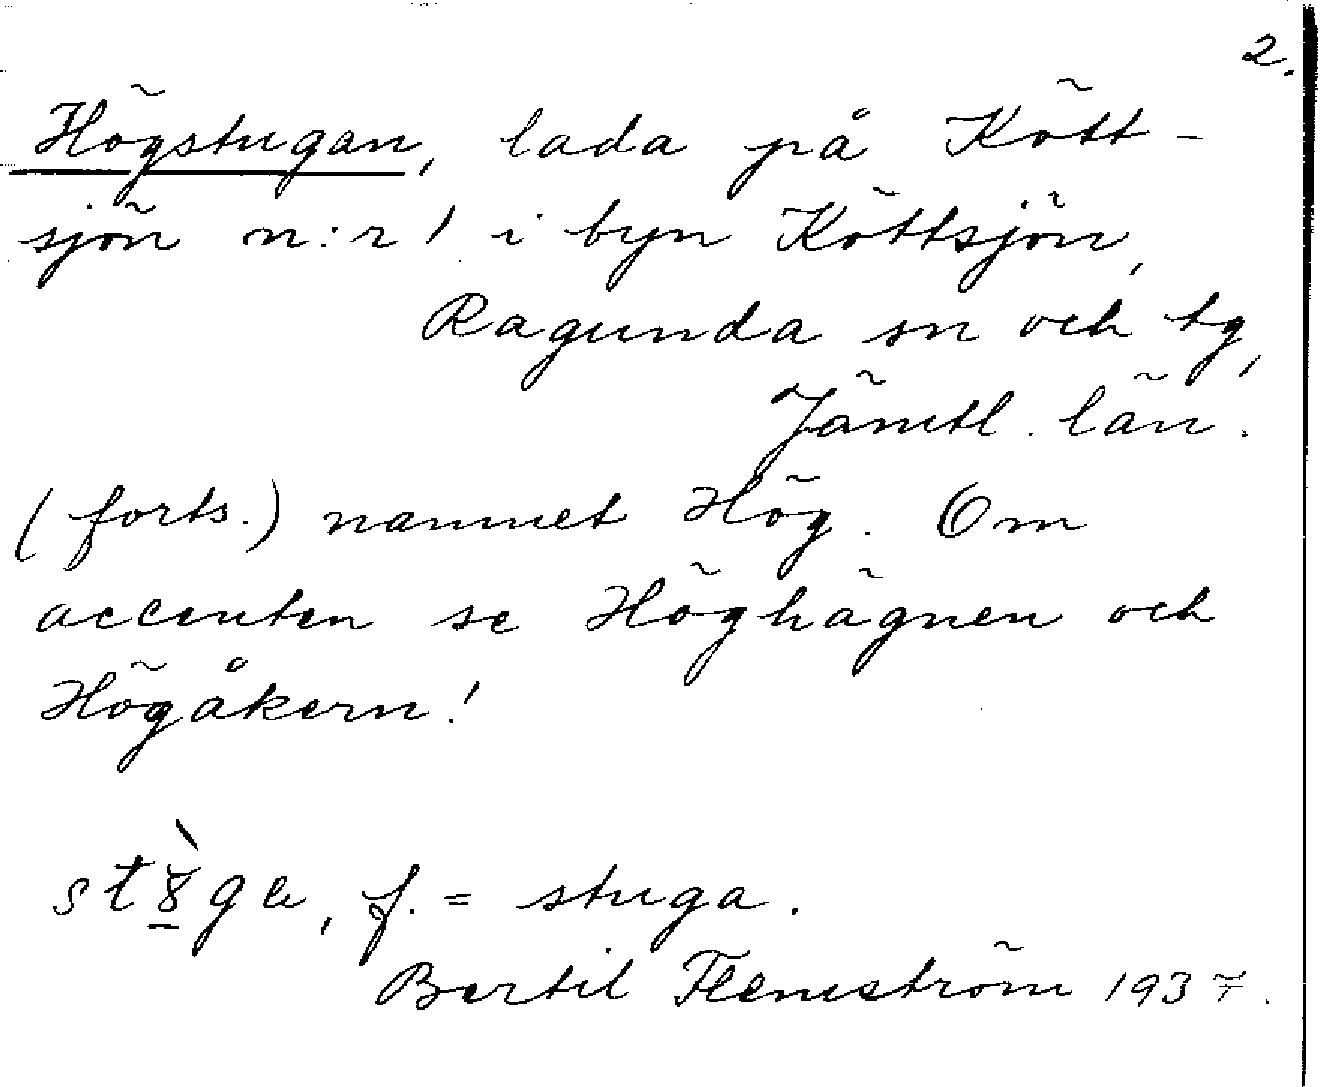 2.
Högstugan, lada på Kött-
sjön n:r 1 i byn Köttsjön,
Ragunda sn och tg,
Jämtl. län.
(forts.) namnet Hög. Om
accenten se Höghägnen och
Högåkern!
f. = stuga.
Bertil Flemström 1937.